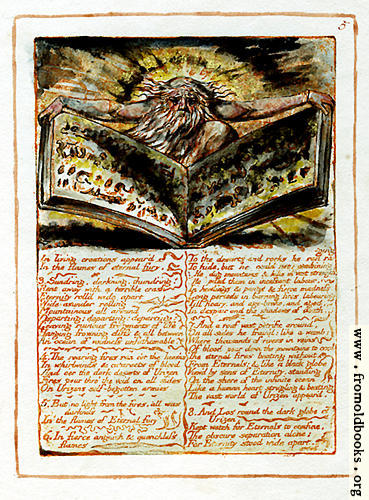 5
In living creations appear'd
In the flames of eternal fury.
3. Sund'ring, dark'ning, thund'ring!
Rent away with a terrible crash
Eternity roll'd wide apart
Wide asunder rolling
Mountainous all around
Departing; departing; departing:
Leaving ruinous fragments of life
Hanging frowning cliffs & all between
An ocean of voidness unfathomable
4. The roaring fires ran o'er the heav'ns
In whirlwinds & cataracts of blood
And o'er the dark desarts of Urizen
Fires pour thro' the void on all sides
On Urizens self-begotten armies.
5. But no light from the fires. all was
darkness
In the flames of Eternal fury
6. In fierce anguish & quenchless
flames
To the desarts and rocks He ran raging
To hide, but He could not: combining
He dug mountains & hills in vast strength,
He piled them in incessant labour,
In howlings & pangs & fierce madness
Long periods in burning fires labouring
Till hoary, and age-broke, and aged,
In despair and the shadows of death.
7. And a roof vast petrific around,
On all sides He fram'd: like a womb;
Where thousands of rivers in veins
Of blood pour down the mountains to cool
The eternal fires beating without
From Eternals; & like a black globe
View'd by sons of Eternity, standing
On the shore of the infinite ocean
Like a human heart strugling & beating
The vast world of Urizen appear'd.
8. And Los round the dark globe of
Urizen,
Kept watch for Eternals to confine,
The obscure separation alone;
For Eternity stood wide apart,
www.fromoldbooks.org